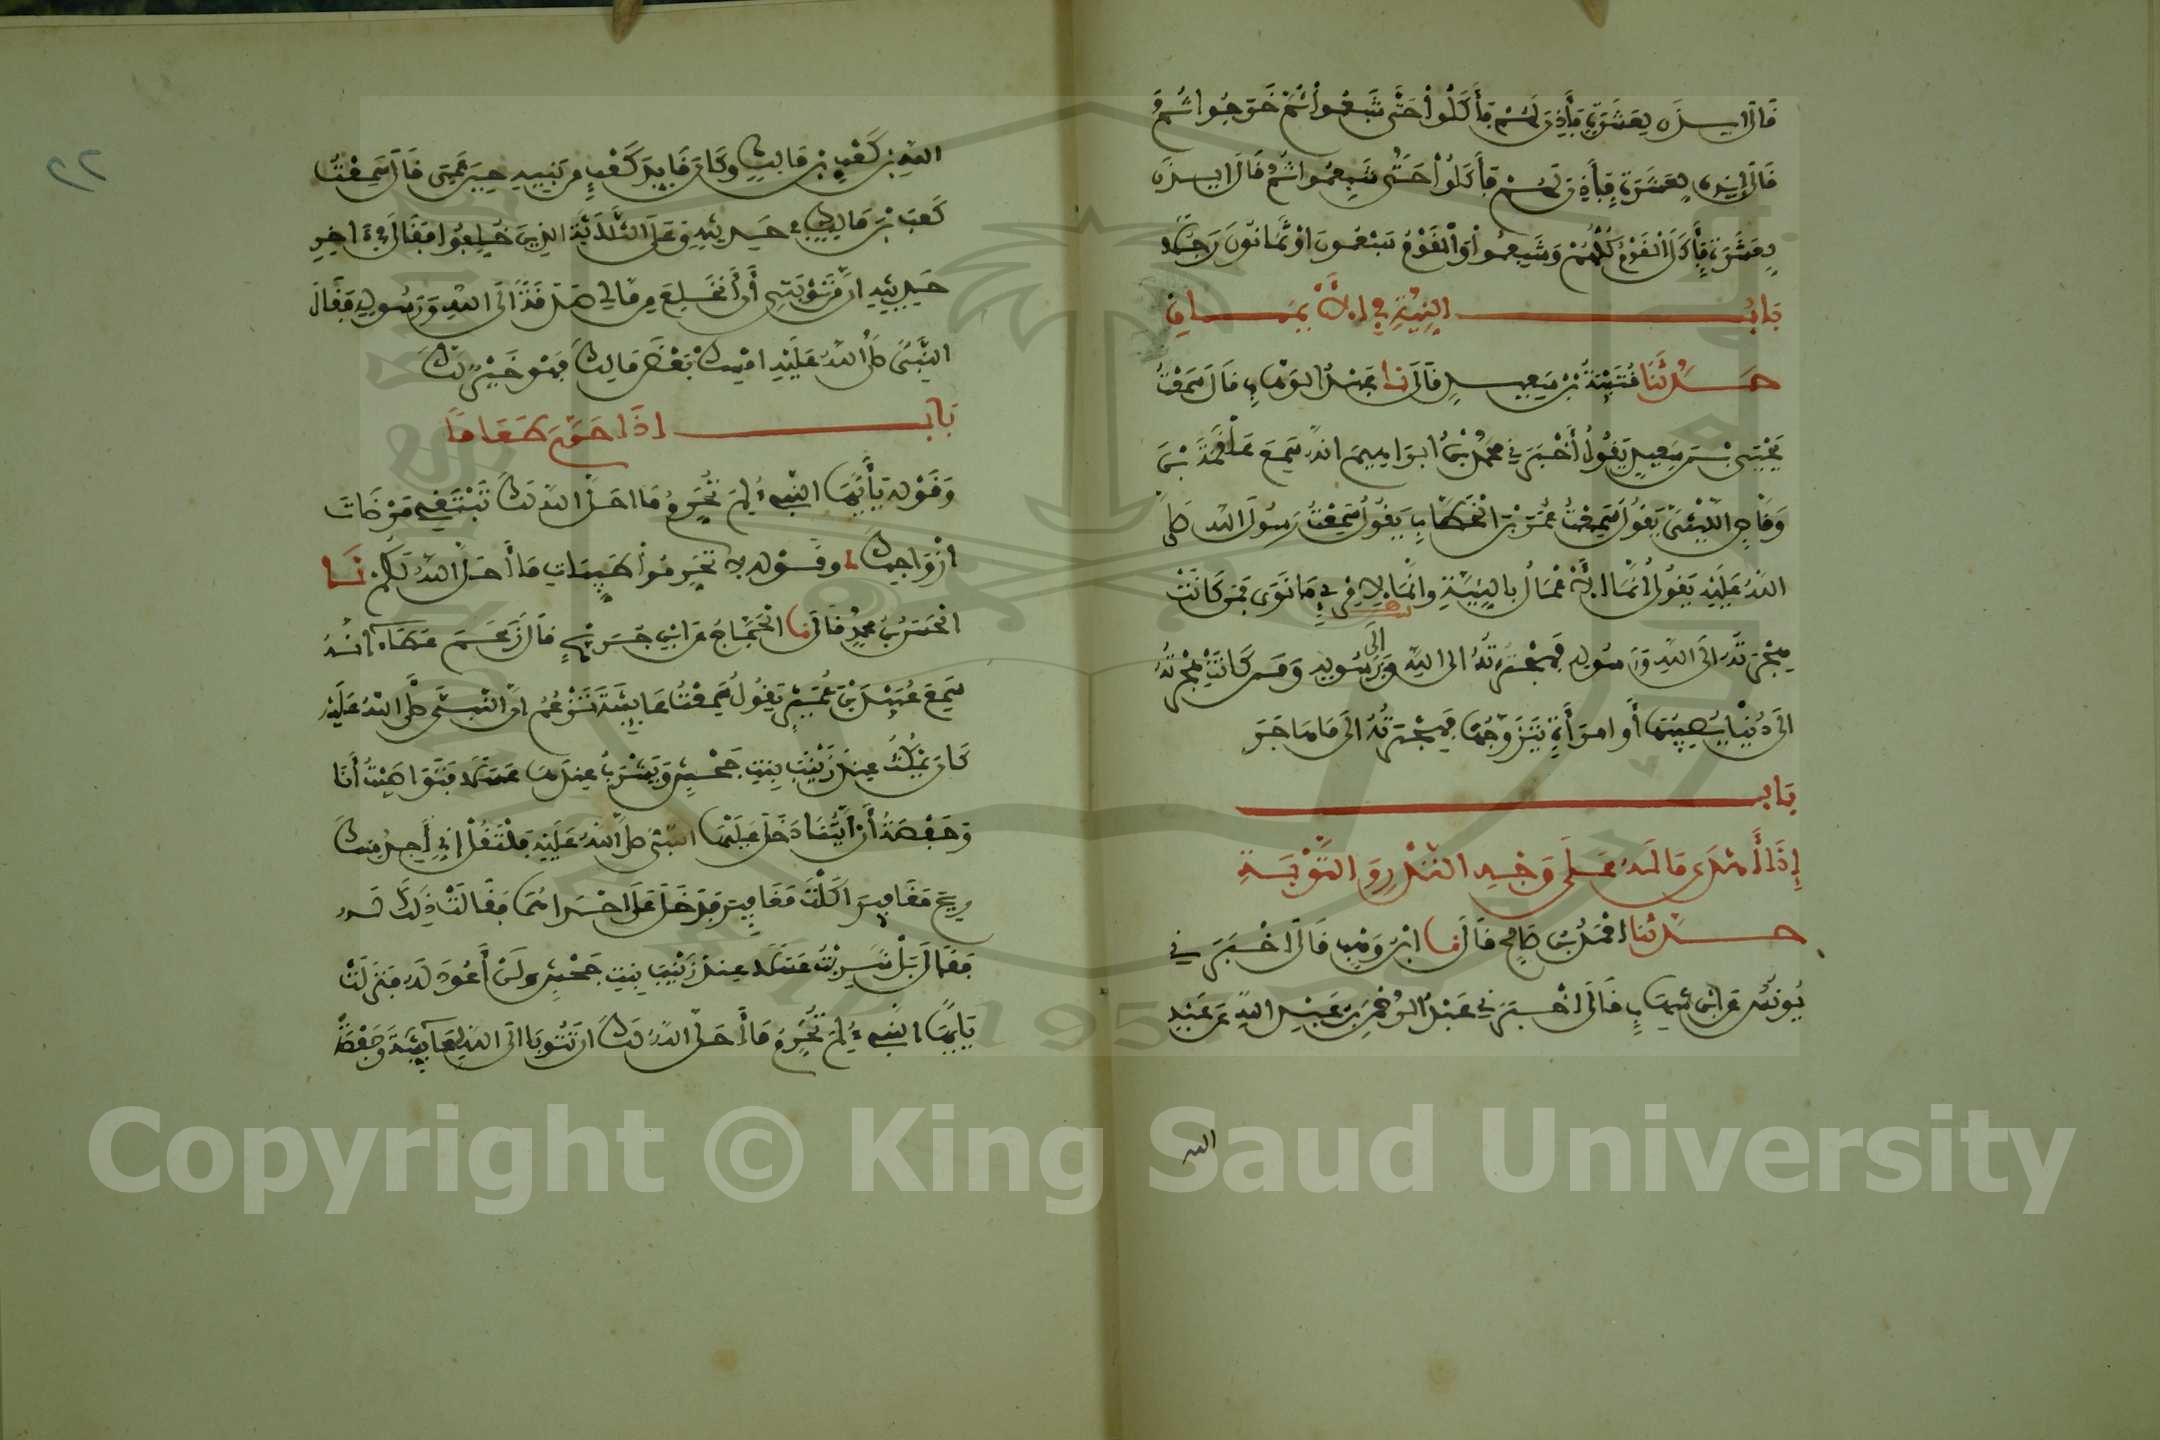 قَالَ ايذَن لِعَشَرَةٍ فَأَذِنَ لَهُمْ فَأَكَلُوا حَتَّى شَبِعُوا ثُمَّ خَرَجُوا ثُمَّ
قَالَ ايذَن لِعَشَرَةٍ فَأَذِنَ لَهُمْ فَأَكَلُوا حَتَّى شَبِعُوا ثُمَّ قَالَ ايذَن
لِعَشَرَةٍ فَأَكَلَ الْقَوْمُ كُلُّهُمْ وَشَبِعُوا وَالْقَوْمُ سَبْعُونَ اوْ ثَمَانُونَ رَجُلًا
بَابُ النِّيَّةِ فِي الأَيْمَانِ
حَدَّثَنَا قُتَيْبَةُ بْنُ سَعِيدٍ قَالَ نا عَبْدُ الوَهَّابِ قَالَ سَمِعْتُ
يَحْيَى بْنَ سَعِيدٍ يَقُولُ أَخْبَرَنِي مُحَمَّدُ بْنُ ابراهِيمَ انَّهُ سَمِعَ عَلْقَمَةَ بْنَ
وَقَّاصٍ اللَّيْثِيَّ يَقُولُ سَمِعْتُ عُمَرَ بْنَ الْخَطَّابِ يَقُولُ سَمِعْتُ رَسُولَ اللهِ صَلَّى
اللهُ عَلَيْهِ يَقُولُ انَّمَا الأَعْمَالُ بِالنِّيَّةِ وانَّمَا لامْرِئٍ مَا نَوَى فَمَن كَانَتْ
هِجْرَتُهُ الَى اللهِ وَرَسُولِهِ فَهِجْرَتُهُ الى اللهِ وَالَى رَسُولِهِ وَمَن كَانَتْ هِجْرَتُهُ
الَى دُنْيَا يُصِيبُهَا أَو امرَأَةٍ يَتَزَوَّجُهَا فَهِجْرَتُهُ الَى مَا هَاجَرَ
بَابُ
إِذَا أَهْدَى مَالَهُ عَلَى وَجْهِ النَّذْرِ وَالتَّوْبَةِ
حَدَّثَنَا احْمَدُ بْنُ صَالِحٍ قَالَ نا ابْنُ وَهْبٍ قَالَ اخْبَرَنِي
يُونُسُ عَنِ ابْنِ شِهَابٍ قَالَ اخْبَرَنِي عَبْدُ الرَّحْمَنِ بْنُ عَبْدِ اللهِ عَن عَبْدِ
الله
٢٢
اللهِ بْنِ كَعْبِ بْنِ مَالِكٍ وكَانَ قَايِدَ كَعْبٍ مِن بَنِيهِ حِينَ عَمِيَ قَالَ سَمِعْتُ
كَعْبَ بْنَ مَالِكٍ فِي حَدِيثِهِ وَعَلَى الثَّلَاثَةِ الذِينَ خُلِّفُوا فَقَالَ فِي ءَاخِرِ
حَدِيثِهِ انَّ مِن تَوْبَتِي أَن أَنْخَلِعَ مِن مَالِي صَدَقَةً الَى اللهِ وَرَسُولِهِ فَقَالَ
النَّبِيُّ صَلَّى اللهُ عَلَيْهِ امْسِكْ بَعْضَ مَالِكَ فَهْوَ خَيْرٌ لَكَ
بَابُ اذَا حَرَّمَ طَعَامًا
وَقَوْلِهِ يَأَيُّهَا النَّبِيءُ لِمَ تُحَرِّمُ مَا احَلَّ اللهُ لَكَ تَبْتَغِي مَرْضَاتَ
ازْوَاجِكَ وقَوْلِهِ لا تُحَرِّمُوا طَيِّبَاتِ مَا أَحَلَّ اللهُ لَكُمْ نَا
الْحَسَنُ بْنُ مُحَمَّدٍ قَالَ نا الْحَجَّاجُ عَنِ ابْنِ جُرَيْجٍ قَالَ زَعَمَ عَطَاءٌ انَّهُ
سَمِعَ عُبَيْدَ بْنَ عُمَيْرٍ يَقُولُ سَمِعْتُ عَايِشَةَ تَزْعُمُ انَّ النَّبِيَّ صَلَّى اللهُ عَلَيْهِ
كَانَ يَمْكُثُ عِنْدَ زَيْنَبَ بِنْتِ جَحْشٍ وَيَشْرَبُ عِنْدَهَا عَسَلًا فَتَوَاصَيْتُ أَنَا
وَحَفْصَةُ أَنَّ ايَّتَنَا دَخَلَ عَلَيْهَا النَّبِيُّ صَلَّى اللهُ عَلَيْهِ فَلْتَقُلْ إنِّي أَجِدُ مِنْكَ
رِيحَ مَغَافِيرَ اكَلْتَ مَغَافِيرَ فَدَخَلَ عَلَى احْدَاهُمَا فَقَالَتْ ذَلِكَ لَهُ
فَقَالَ بَلْ شَرِبْتُ عَسَلًا عِنْدَ زَيْنَبَ بِنْتِ جَحْشٍ ولَنْ أَعُودَ لَهُ فَنَزَلَتْ
يَأَيُّهَا النَّبِيءُ لِمَ تُحَرِّمُ مَا أَحَلَّ اللهُ لَكَ ان تَتُوبَا الَى اللهِ لِعَايِشَةَ وَحَفْصَةَ
Copyright © King Saud University
1957